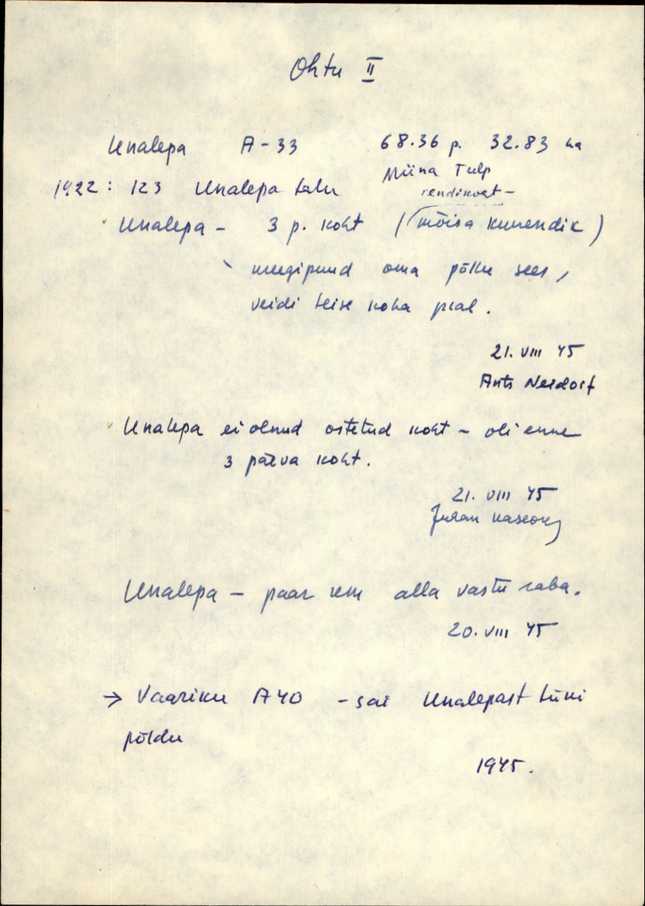 Ohtu II
Unalepa A-33 68.36 p. 32.83 ha
Miina Tulp
1922: 123 Unalepa talu rendikoht -
Unalepa - 3 p. koht (mõisa kuuendik)
oma põllu sees,
veidi teise koha peal.
21. VIII 45
Ants
Unalepa ei olnud ostetud koht - oli enne
3 päeva koht.
21. VIII 45
Juhan
Unalepa - paar km alla vastu raba.
20. VIII 45
→ Vaariku A40 - sai Unalepast tüki
põldu
1945.